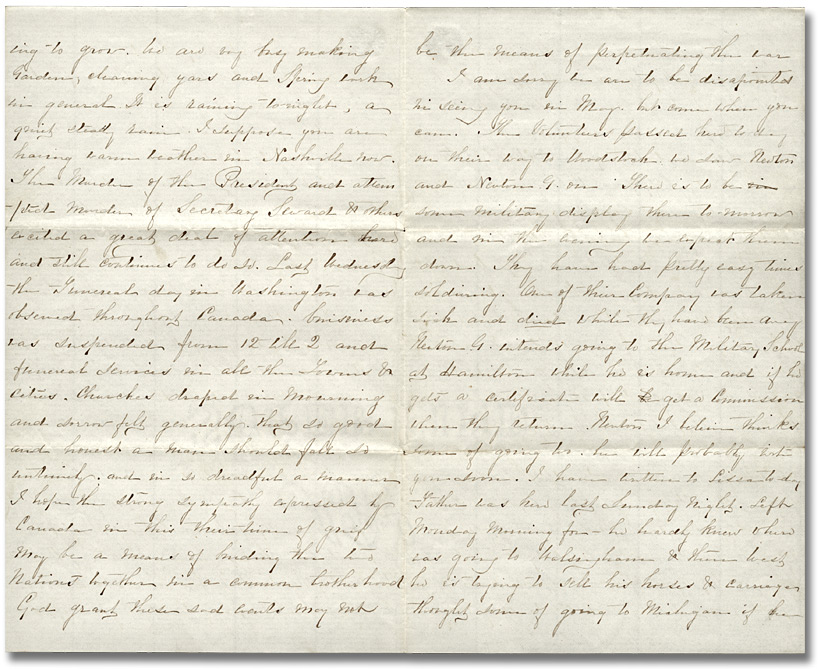 ing to grow. We are very busy making
Garden, cleaning yard and Spring work
in general. It is raining to-night, a
quiet steady rain. I suppose you are
having warm weather in Nashville now.
The Murder of the President and attem
-pted Murder of Secretary Seward & others
excited a great deal of attention here
and still continues to do so. Last Wednesday
the Funeral day in Washington was
observed throughout Canada. business
was suspended from 12 till 2 and
funeral services in all the Towns &
Cities. Churches draped in Mourning
and sorrow felt generally that so good
and honest a man should fall so
untimely. and in so dreadful a manner
I hope the strong sympathy expressed by
Canada in this their time of grief
may be a means of binding the two
Nations together in a common brotherhood
God grant these sad events may not
be the means of perpetuating the war
I am sorry we are to be disapointed
in seeing you in May. but come when you
can. The Volunteers passed here to-day
on their way to Woodstock. we saw Newton
and Newton G. on There is to be
some military display there to-morrow
and in the evening we expect them
down. They have had pretty easy times
soldiering. One of their Company was taken
sick and died while they have been away
Newton G. intends going to the Military School
at Hamilton while he is home and if he
gets a certificate will get a Commission
when they return. Newton I believe thinks
some of going too. he will probably not
soon. I have written to Lissa to day
Father was here last Sunday Night. Left
Monday Morning for - he hardly knew where
was going to Walsingham & then west
he is trying to sell his horses & carriages
thought some of going to Michigan if he